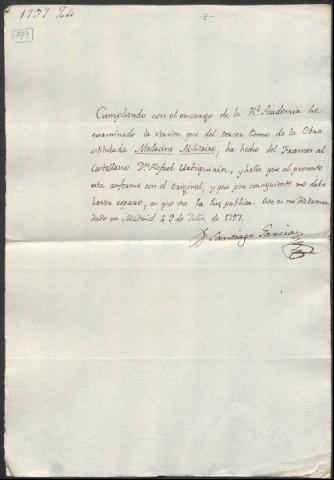 1797 Julio
179
Cumpliendo con el encargo de la Rl. Academia he
examinado la version, que del tercer tomo de la Obra
titulada Medecine Militaire, ha hecho del Frances al
Castellano Dn. Rafael, y hallo que al presente
esta conforme con el Original, y que por consiguiente no debe
haver reparo, en que vea la luz publica. Este es mi dictamen
dado en Madrid à 9 de Julio de 1797.
Santiago Garcia